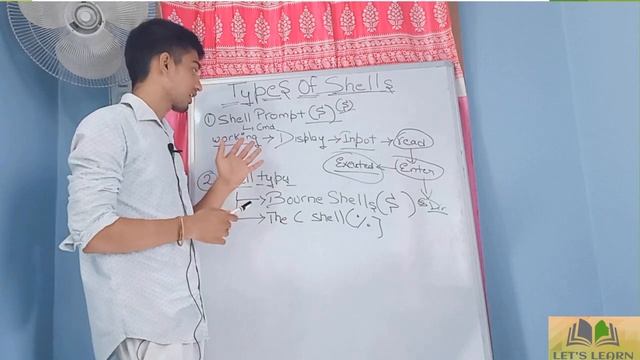 Types Of Shells
① Shell Prompt ($) ($)
↳ Cmd
working → Display → Input → read
Executed ← Enter
② typy
→ Bourne Shells ($)
→ The C shell (%]
LET'S LEARN